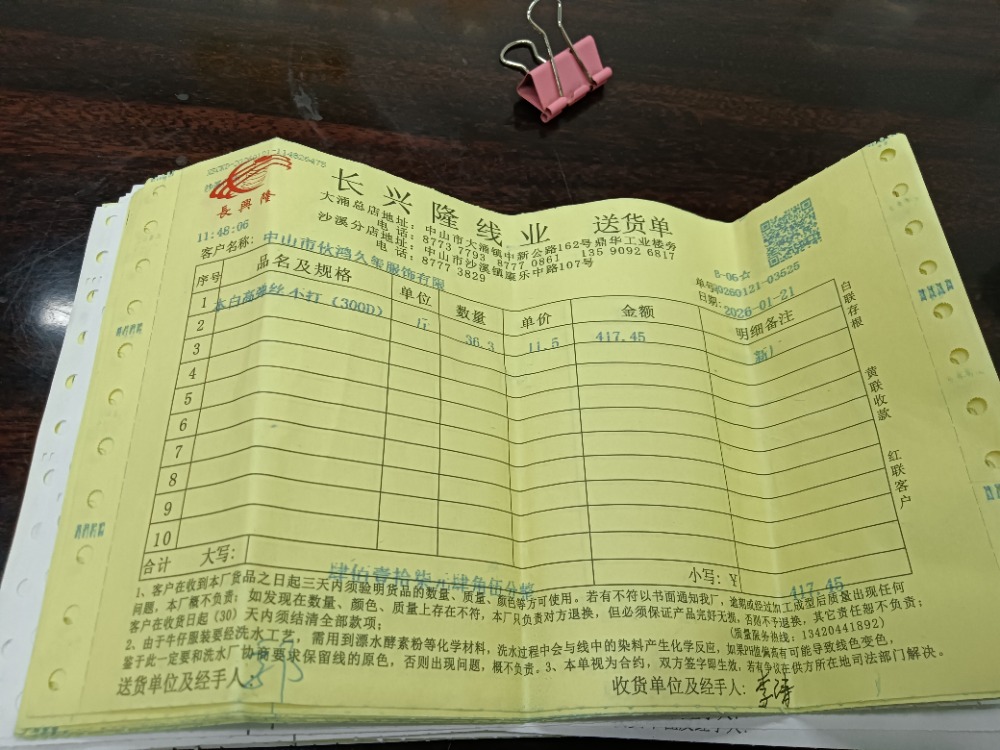 長興隆
长兴隆线业 送货单
大涌总店地址：中山市大涌镇中新公路162号鼎华工业楼旁
电话：8773 7793 8777 0861 135 9092 6817
沙溪分店地址：中山市沙溪镇康乐中路107号
电话：8777 3829
11:48:06
B-05☆
客户名称：中山市伙鸿久玺服饰有限
单号：20260121-03525
日期：2026-01-21
序号 品名及规格 单位 数量 单价 金额 明细备注
1 本白高弹丝 小打（300D） 斤 36.3 11.5 417.45
2
3
4
5
6
7
8
9
10
合计 大写：肆佰壹拾柒元肆角伍分整 小写：¥ 417.45
白联存根
黄联收款
红联客户
1、客户在收到本厂货品之日起三天内须验明货品的数量、质量、颜色等方可使用。若有不符以书面通知我厂，逾期或经过加工成型后质量出现任何
问题，本厂概不负责；如发现在数量、颜色、质量上存在不符，本厂只负责对方退换，但必须保证产品完好无损，否则不予退换，其它责任恕不负责；
客户在收货日起（30）天内须结清全部款项；
（质量服务热线：13420441892）
2、由于牛仔服装要经洗水工艺，需用到漂水酵素粉等化学材料，洗水过程中会与线中的染料产生化学反应，如果PH值偏高有可能导致线色变色，
鉴于此一定要和洗水厂协商要求保留线的原色，否则出现问题，概不负责。3、本单视为合约，双方签字即生效，若有争议在供方所在地司法部门解决。
送货单位及经手人：
收货单位及经手人：李清